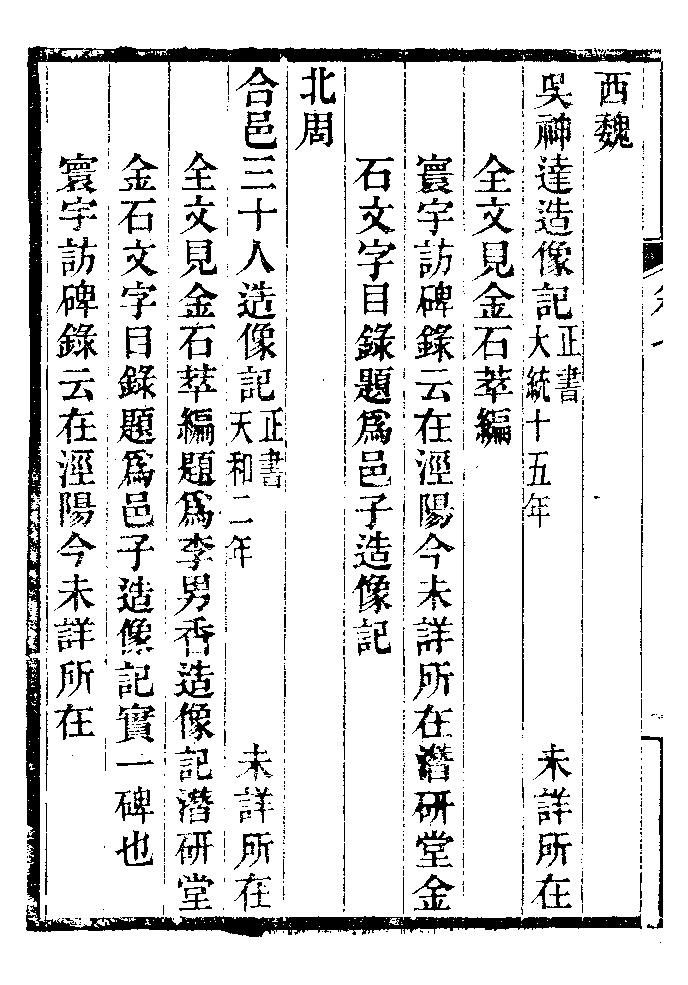 西魏
吳神達造像記正書大統十五年　未詳所在
全文見金石萃編
寰宇訪碑錄云在涇陽今未詳所在潛研堂金
石文字目錄題爲邑子造像記
北周
合邑三十人造像記正書天和二年　未詳所在
全文見金石萃編題爲李男香造像記潛研堂
金石文字目錄題爲邑子造像記實一碑也
寰宇訪碑錄云在涇陽今未詳所在